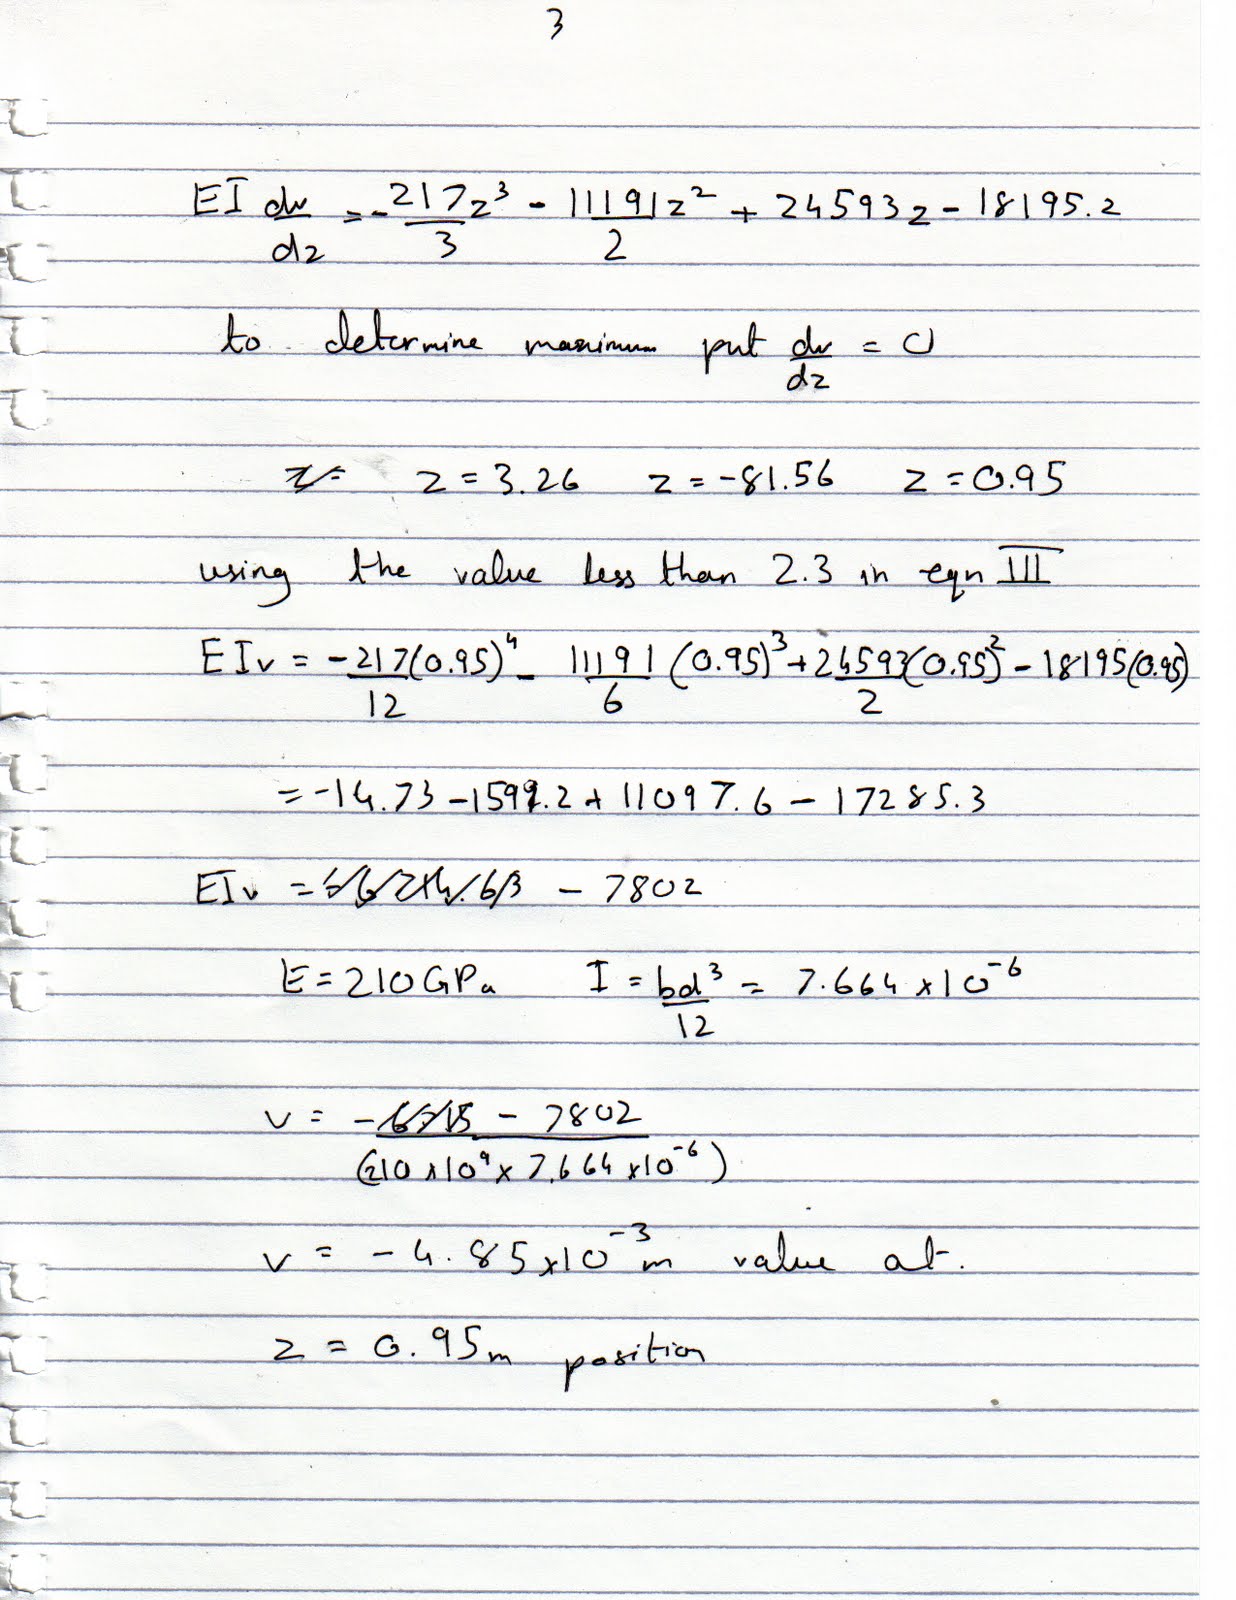 3
EI dv/dz = -217z³/3 - 11191z²/2 + 24593z - 18195.2
to determine maximum put dv/dz = 0
z = z = 3.26 z = -81.56 z = 0.95
using the value less than 2.3 in eqn III
EIv = -217(0.95)⁴/12 - 11191/6 (0.95)³ + 24593/2 (0.95)² - 18195(0.95)
= -14.73 - 1599.2 + 11097.6 - 17285.3
EIv = - 7802
E = 210GPa I = bd³/12 = 7.664 x 10⁻⁶
v = - 7802 / (210 x 10⁹ x 7.664 x 10⁻⁶)
v = - 4.85 x 10⁻³ m value at.
z = 0.95m position